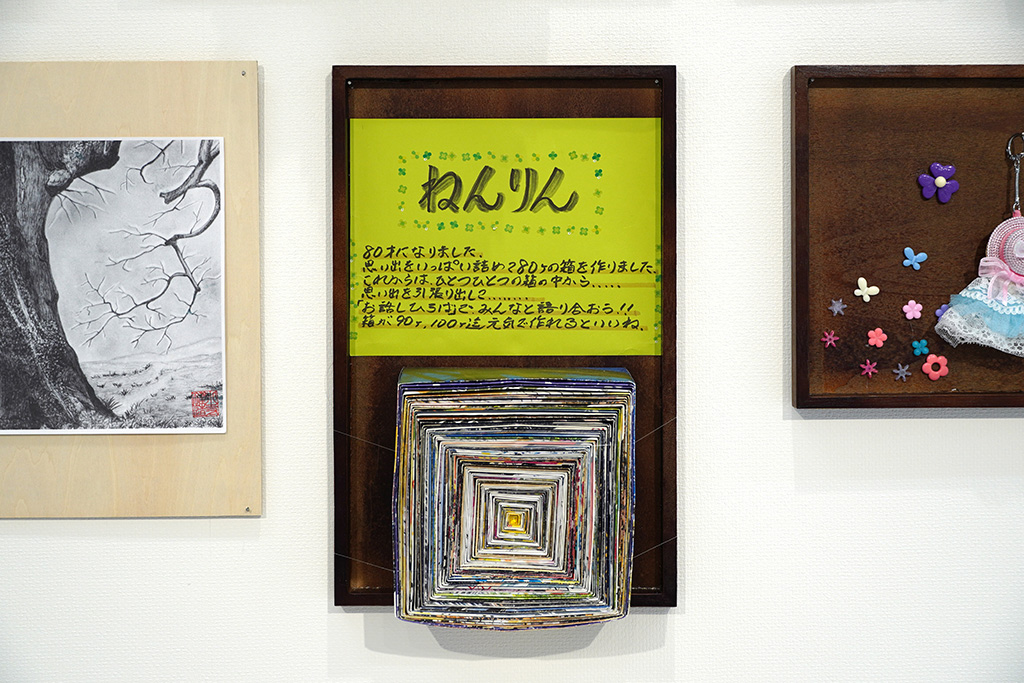 ねんりん
80才になりました。
思い出をいっぱい詰めて80ヶの箱を作りました。
これからは、ひとつひとつの箱の中から.....
思い出を引張り出して........
「お話しひろば」で、みんなと語り合おう!!
箱が90ヶ、100ヶ迄元気で作れるといいね。